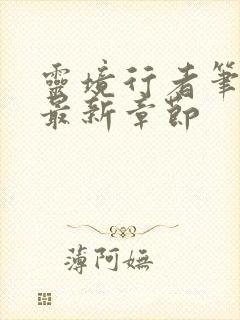 靈境行者筆
最新章節
薄阿嫵